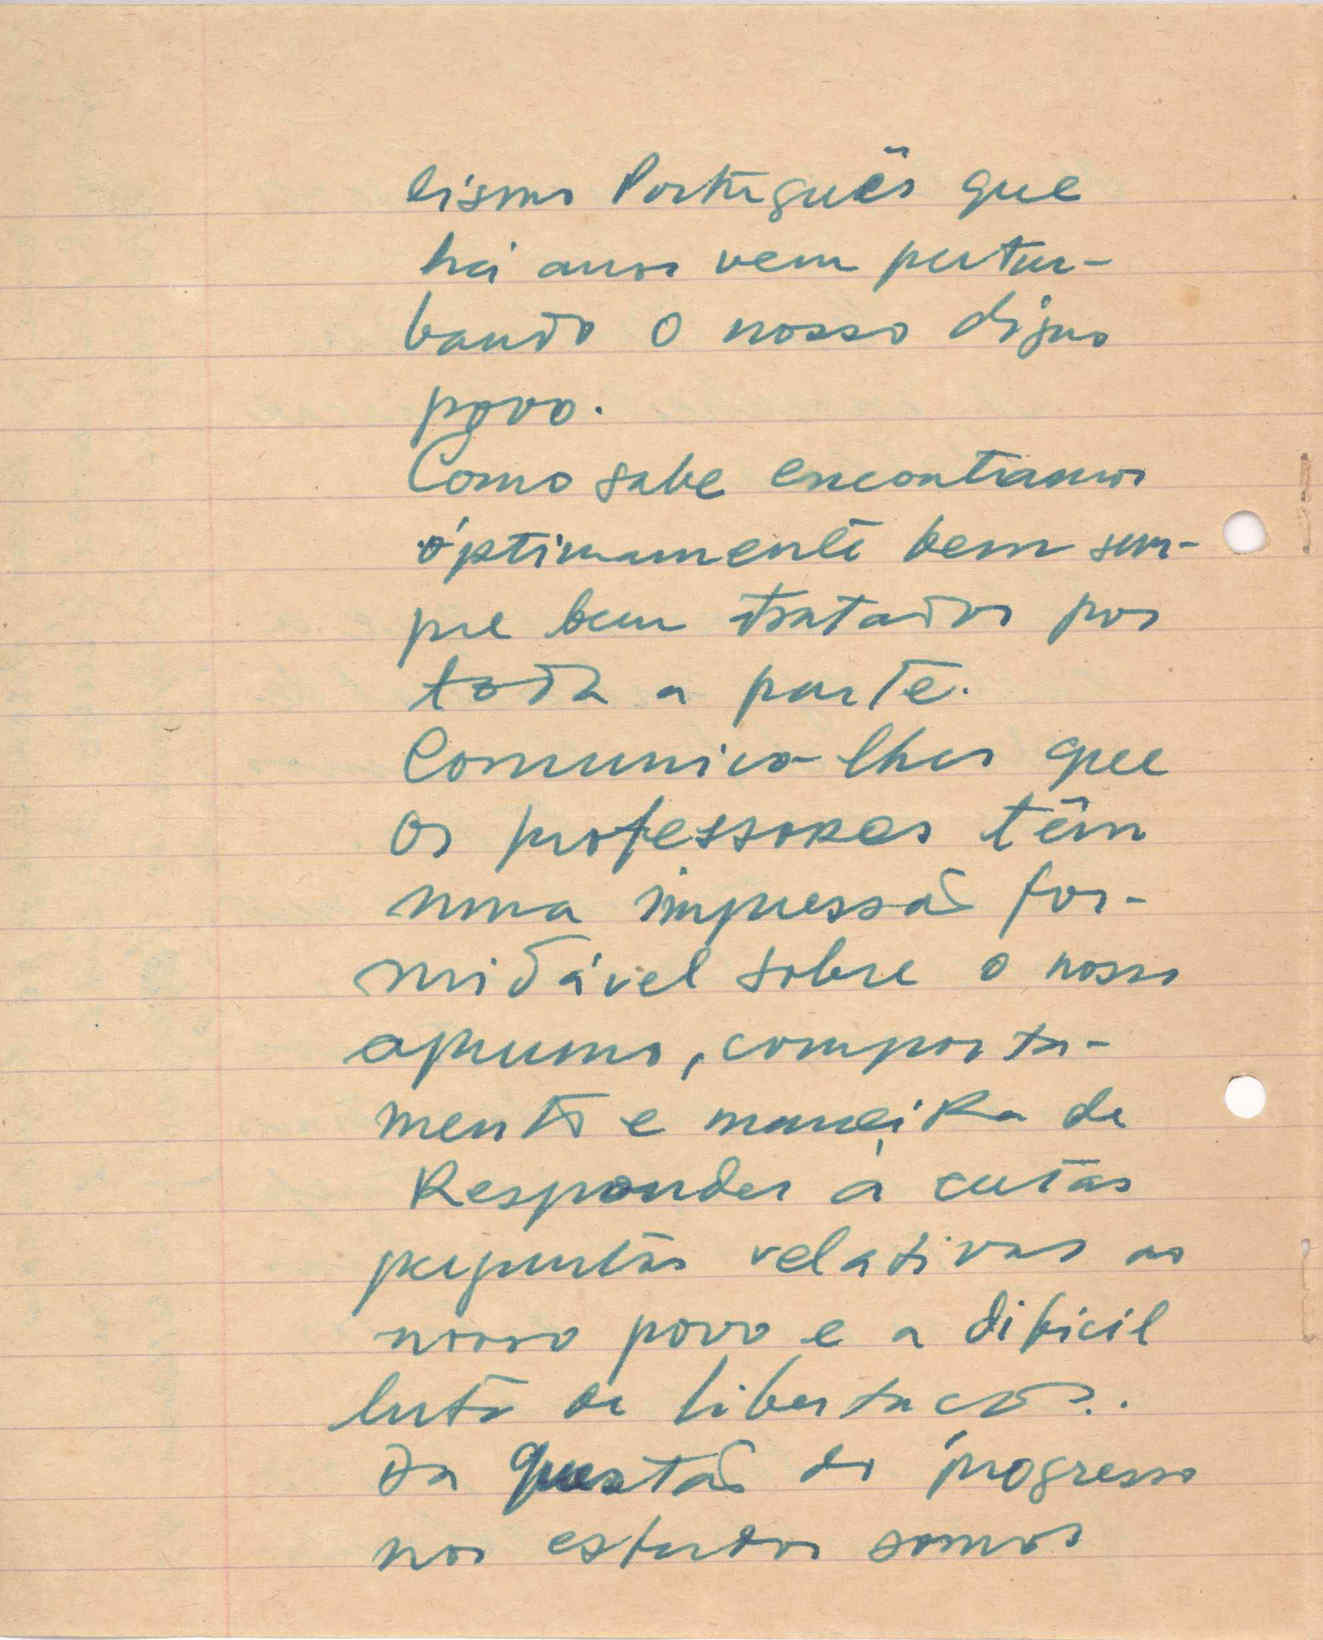 lismo Português que
há anos vem pertur-
bando o nosso digno
povo.
Como sabe encontramos
óptimamente bem sem-
pre bem tratados por
toda a parte.
Comunico-lhes que
os professores têm
numa impressão for-
midável sobre o nosso
aprumo, comporta-
mento e maneira de
Responder à certas
perguntas relativas ao
nosso povo e a difícil
luta de libertação..
Da questão do progresso
nos estudos somos